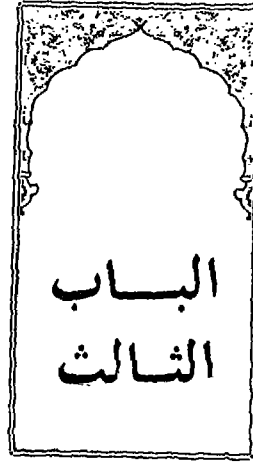 البــاب
الثــالث